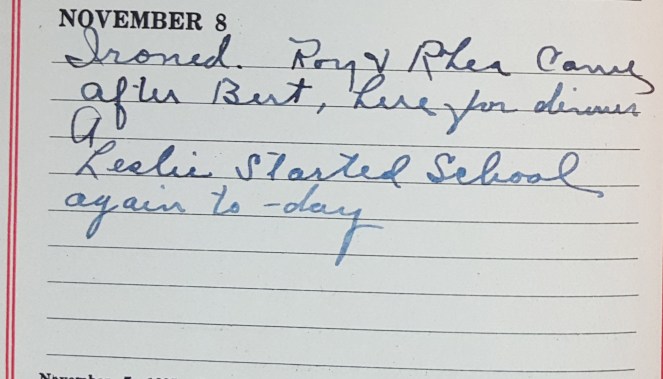 NOVEMBER 8
Ironed. Roy & Rhea Came
after Bert, here for dinner
Leslie Started School
again to-day